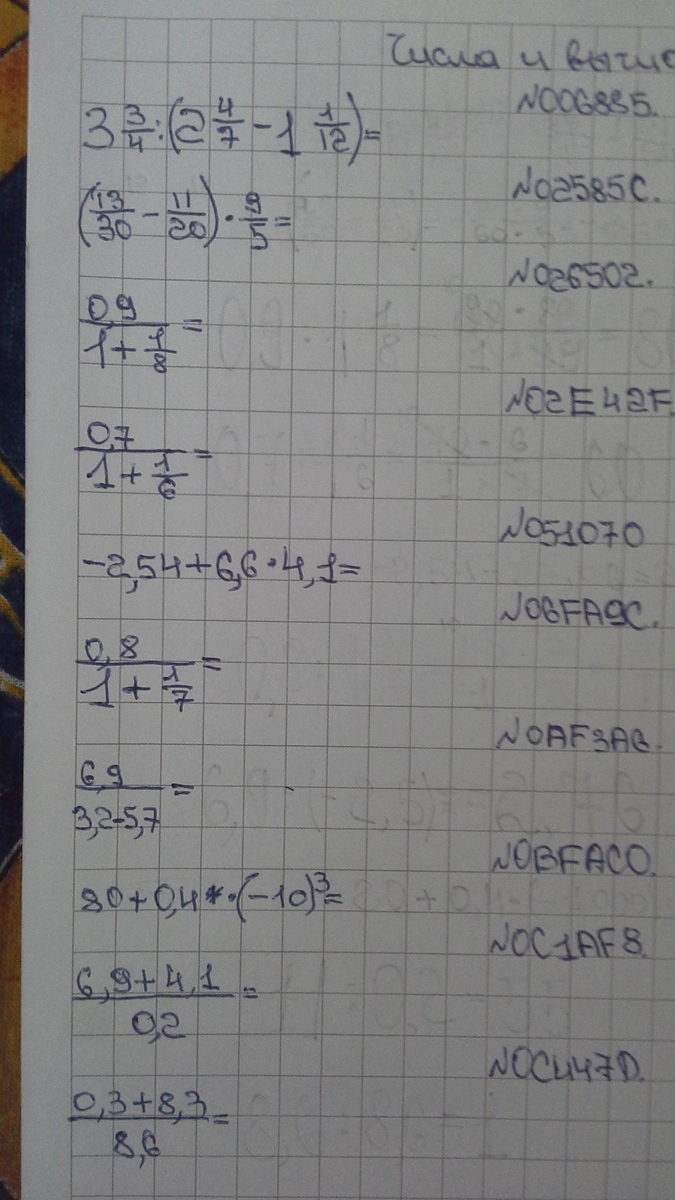 Числа и вычис
№006885.
3 3/4 : (2 4/7 - 1 1/12) =
№02585C.
(13/30 - 11/20) · 9/5 =
№026502.
0,9/(1 + 1/8) =
№02E42F
0,7/(1 + 1/6) =
№051070
-2,54+6,6·4,1=
№06FA9C.
0,8/(1 + 1/7) =
№0AF3A6.
6,9/(3,2-5,7) =
№0BFAC0.
80+0,4·(-10)³=
№0C1AF8.
(6,9+4,1)/0,2 =
№0C447D.
(0,3+8,3)/8,6 =